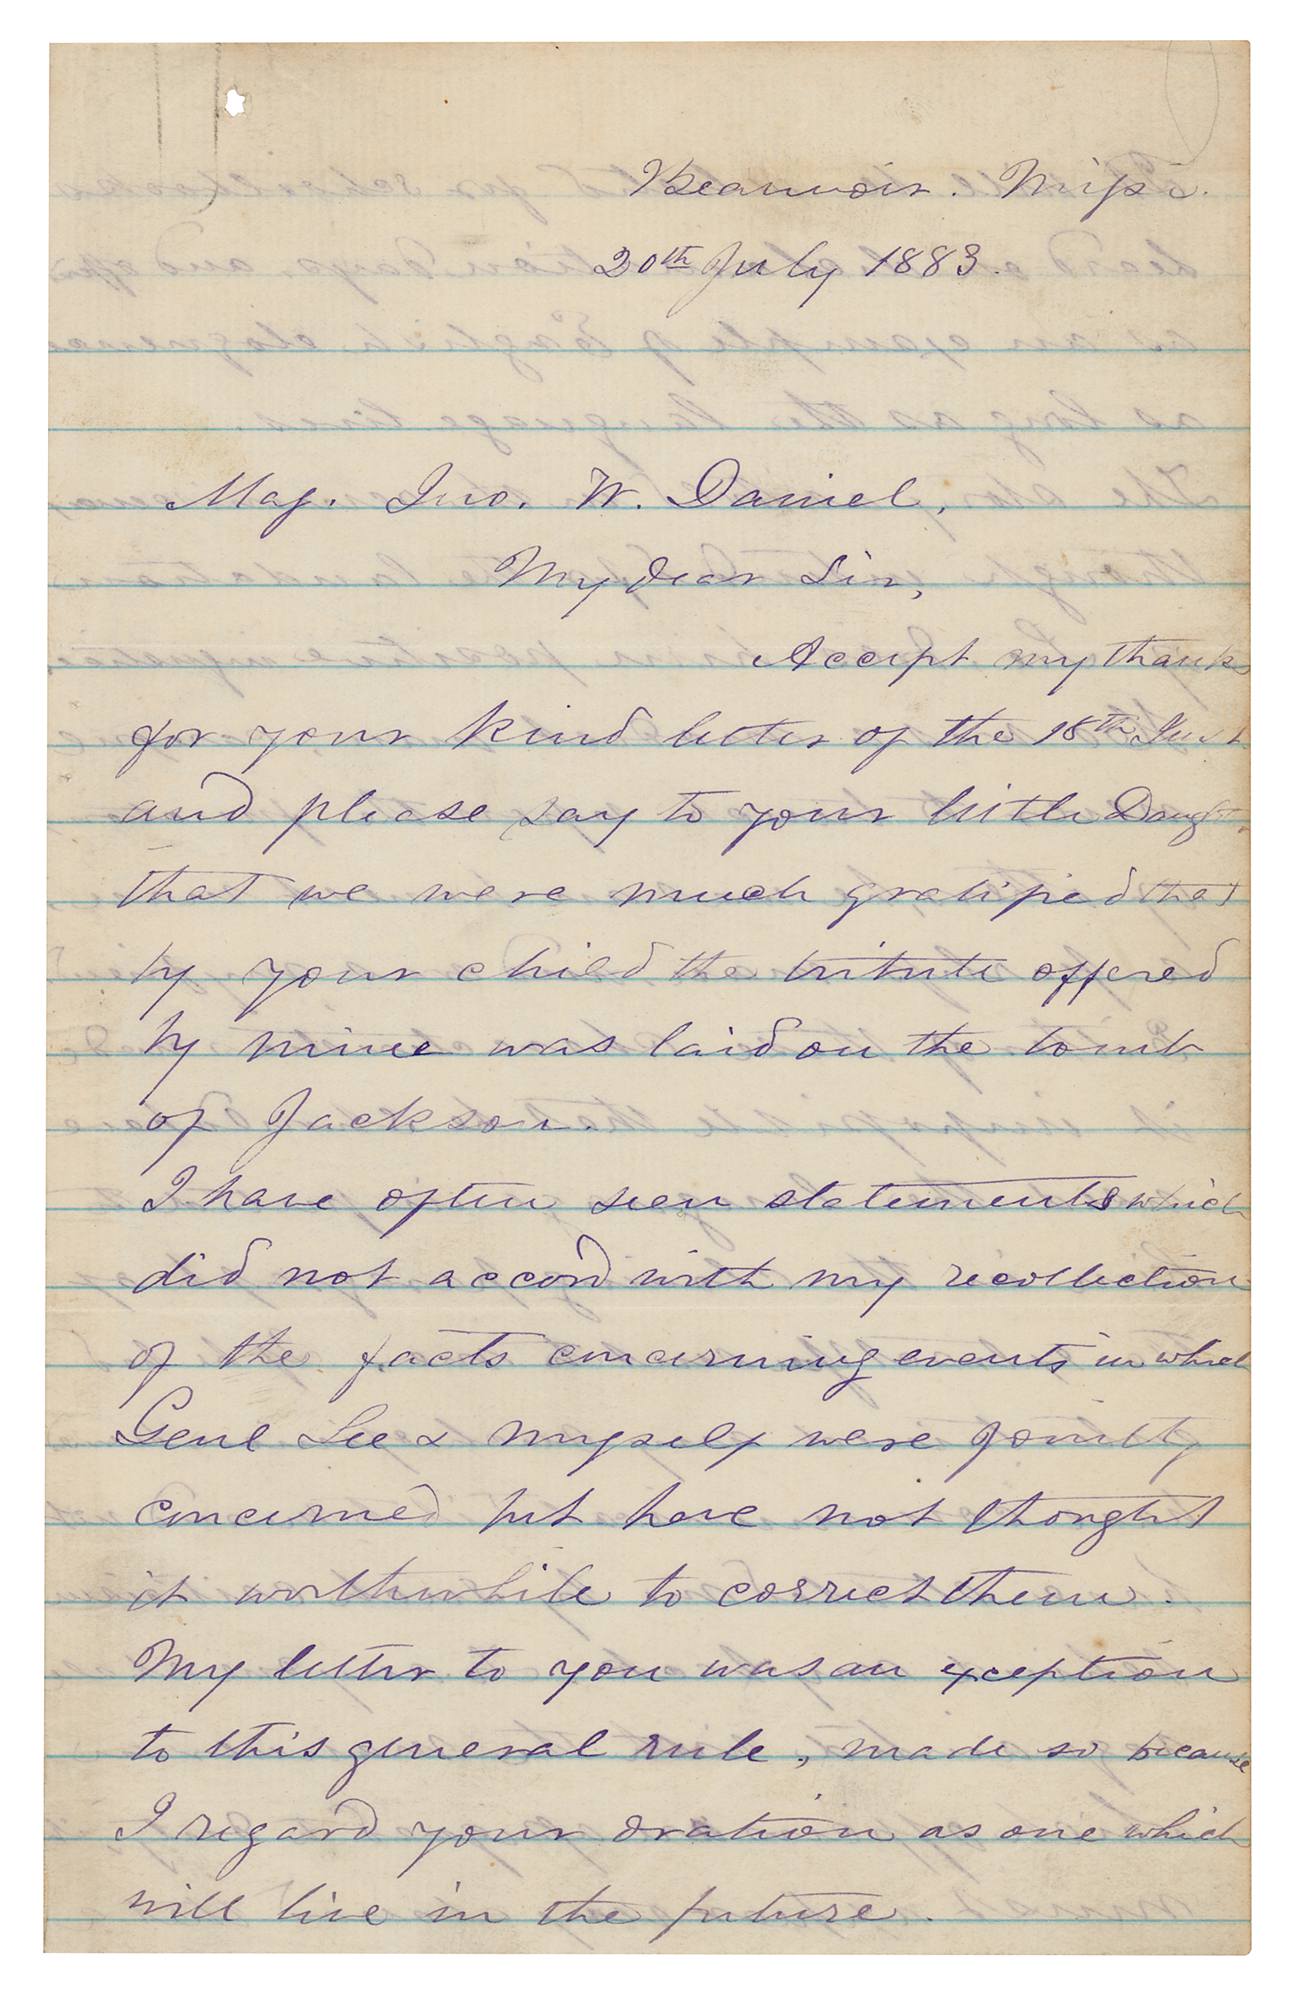 Beauvoir. Missi.
20th July 1883.
Maj. Jno. W. Daniel,
My dear Sir,
Accept my thanks
for your kind letter of the 18th Inst.
and please say to your little Daughtr.
that we were much gratified that
by your child the tribute offered
by mine was laid on the tomb
of Jackson.
I have often seen statements which
did not accord with my recollection
of the facts concerning events in which
Genl Lee & myself were jointly
concerned but have not thought
it worthwhile to correct them.
My letter to you was an exception
to this general rule, made so because
I regard your oration as one which
will live in the future.